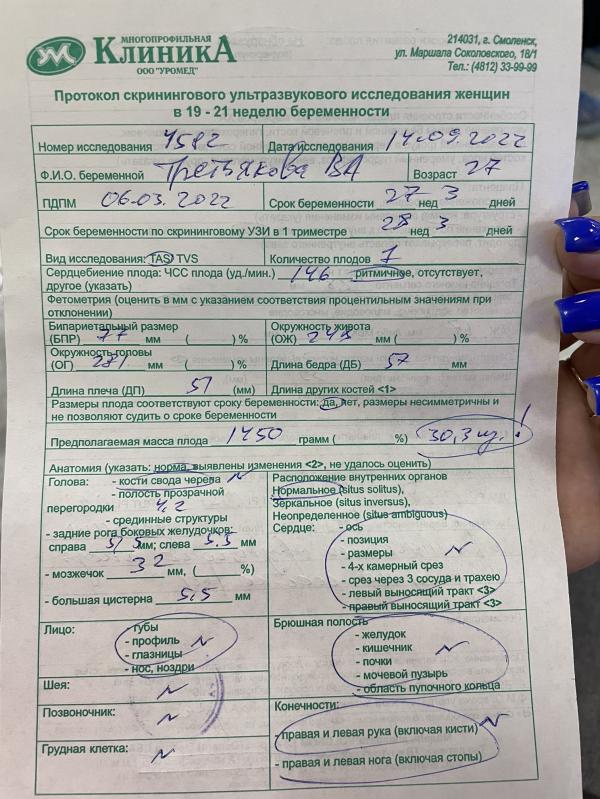 МНОГОПРОФИЛЬНАЯ
КЛИНИКА
ООО "УРОМЕД"
214031, г. Смоленск,
ул. Маршала Соколовского, 18/1
Тел.: (4812) 33-99-99
Протокол скринингового ультразвукового исследования женщин
в 19 - 21 неделю беременности
Номер исследования 4582 Дата исследования 14.09.2022
Ф.И.О. беременной Третьякова ВА Возраст 27
ПДПМ 06.03.2022 Срок беременности 27 нед 3 дней
Срок беременности по скрининговому УЗИ в 1 триместре 28 нед 3 дней
Вид исследования: TAS/ TVS Количество плодов 1
Сердцебиение плода: ЧСС плода (уд./мин.) 146 ритмичное, отсутствует,
другое (указать)
Фетометрия (оценить в мм с указанием соответствия процентильным значениям при
отклонении)
Бипариетальный размер
(БПР) 77 мм ( ) %
Окружность живота
(ОЖ) 245 мм ( ) %
Окружность головы
(ОГ) 281 мм ( ) %
Длина бедра (ДБ) 57 мм
Длина плеча (ДП) 51 (мм) Длина других костей <1>
Размеры плода соответствуют сроку беременности: да, нет, размеры несимметричны и
не позволяют судить о сроке беременности
Предполагаемая масса плода 1450 грамм ( %) 30,3 !
Анатомия (указать: норма, выявлены изменения <2>, не удалось оценить)
Голова: - кости свода черепа N
- полость прозрачной
перегородки 4,2
- срединные структуры
- задние рога боковых желудочков:
справа 5,5 мм; слева 5.5 мм
- мозжечок 32 мм, ( %)
- большая цистерна 5,5 мм
Расположение внутренних органов
Нормальное (situs solitus),
Зеркальное (situs inversus),
Неопределенное (situs ambiguous)
Сердце: - ось
- позиция
- размеры N
- 4-х камерный срез
- срез через 3 сосуда и трахею
- левый выносящий тракт <3>
- правый выносящий тракт <3>
Лицо: - губы
- профиль N
- глазницы
- нос, ноздри
Брюшная полость
- желудок
- кишечник N
- почки
- мочевой пузырь
- область пупочного кольца
Шея: N
Позвоночник: N
Грудная клетка: N
Конечности:
- правая и левая рука (включая кисти) N
- правая и левая нога (включая стопы)